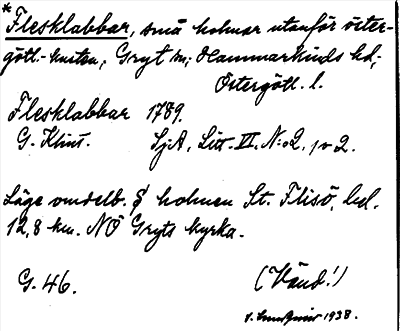 * Flesklabbar, små holmar utanför öster-
götl.-kusten, Gryt sn; Hammarkinds hd,
Östergötl. l.
Flesklabbar 1789.
G. Klint. SjA, Litt. VI. N:o 2, p 2.
Läge omedelb. S holmen St. Flisö, bel.
12,8 km. NÖ Gryts kyrka.
G. 46. (Vänd!)
1938.